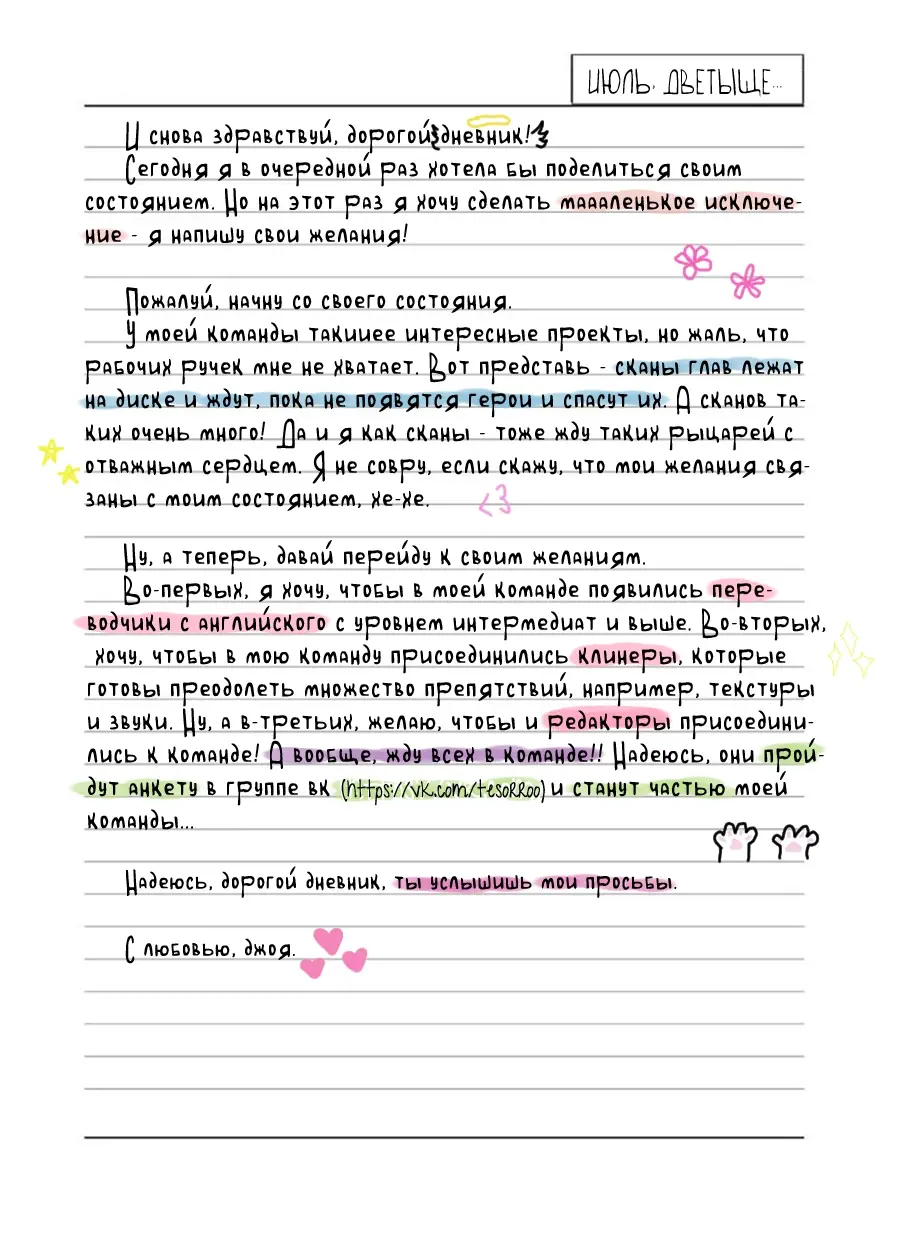 ИЮЛЬ. ДВЕТЫЩЕ...
И снова здравствуй, дорогой дневник!
Сегодня я в очередной раз хотела бы поделиться своим
состоянием. Но на этот раз я хочу сделать маааленькое исключе-
ние - я напишу свои желания!
Пожалуй, начну со своего состояния.
У моей команды такииее интересные проекты, но жаль, что
рабочих ручек мне не хватает. Вот представь - сканы глав лежат
на диске и ждут, пока не появятся герои и спасут их. А сканов та-
ких очень много! Да и я как сканы - тоже жду таких рыцарей с
отважным сердцем. Я не совру, если скажу, что мои желания свя-
заны с моим состоянием, хе-хе. <3
Ну, а теперь, давай перейду к своим желаниям.
Во-первых, я хочу, чтобы в моей команде появились пере-
водчики с английского с уровнем интермедиат и выше. Во-вторых,
хочу, чтобы в мою команду присоединились клинеры, которые
готовы преодолеть множество препятствий, например, текстуры
и звуки. Ну, а в-третьих, желаю, чтобы и редакторы присоедини-
лись к команде! А вообще, жду всех в команде!! Надеюсь, они прой-
дут анкету в группе вк (https://vk.com/tesoRRoo) и станут частью моей
команды...
Надеюсь, дорогой дневник, ты услышишь мои просьбы.
С любовью, джоя.